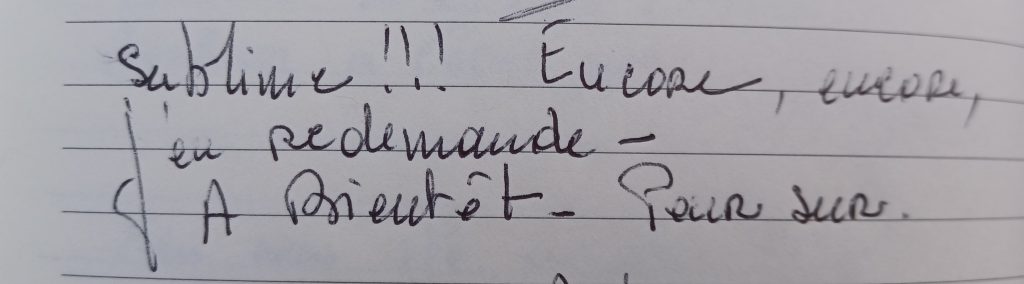 Sublime !!! Encore, encore,
j'en redemande -
A Bientôt - Pour sur.